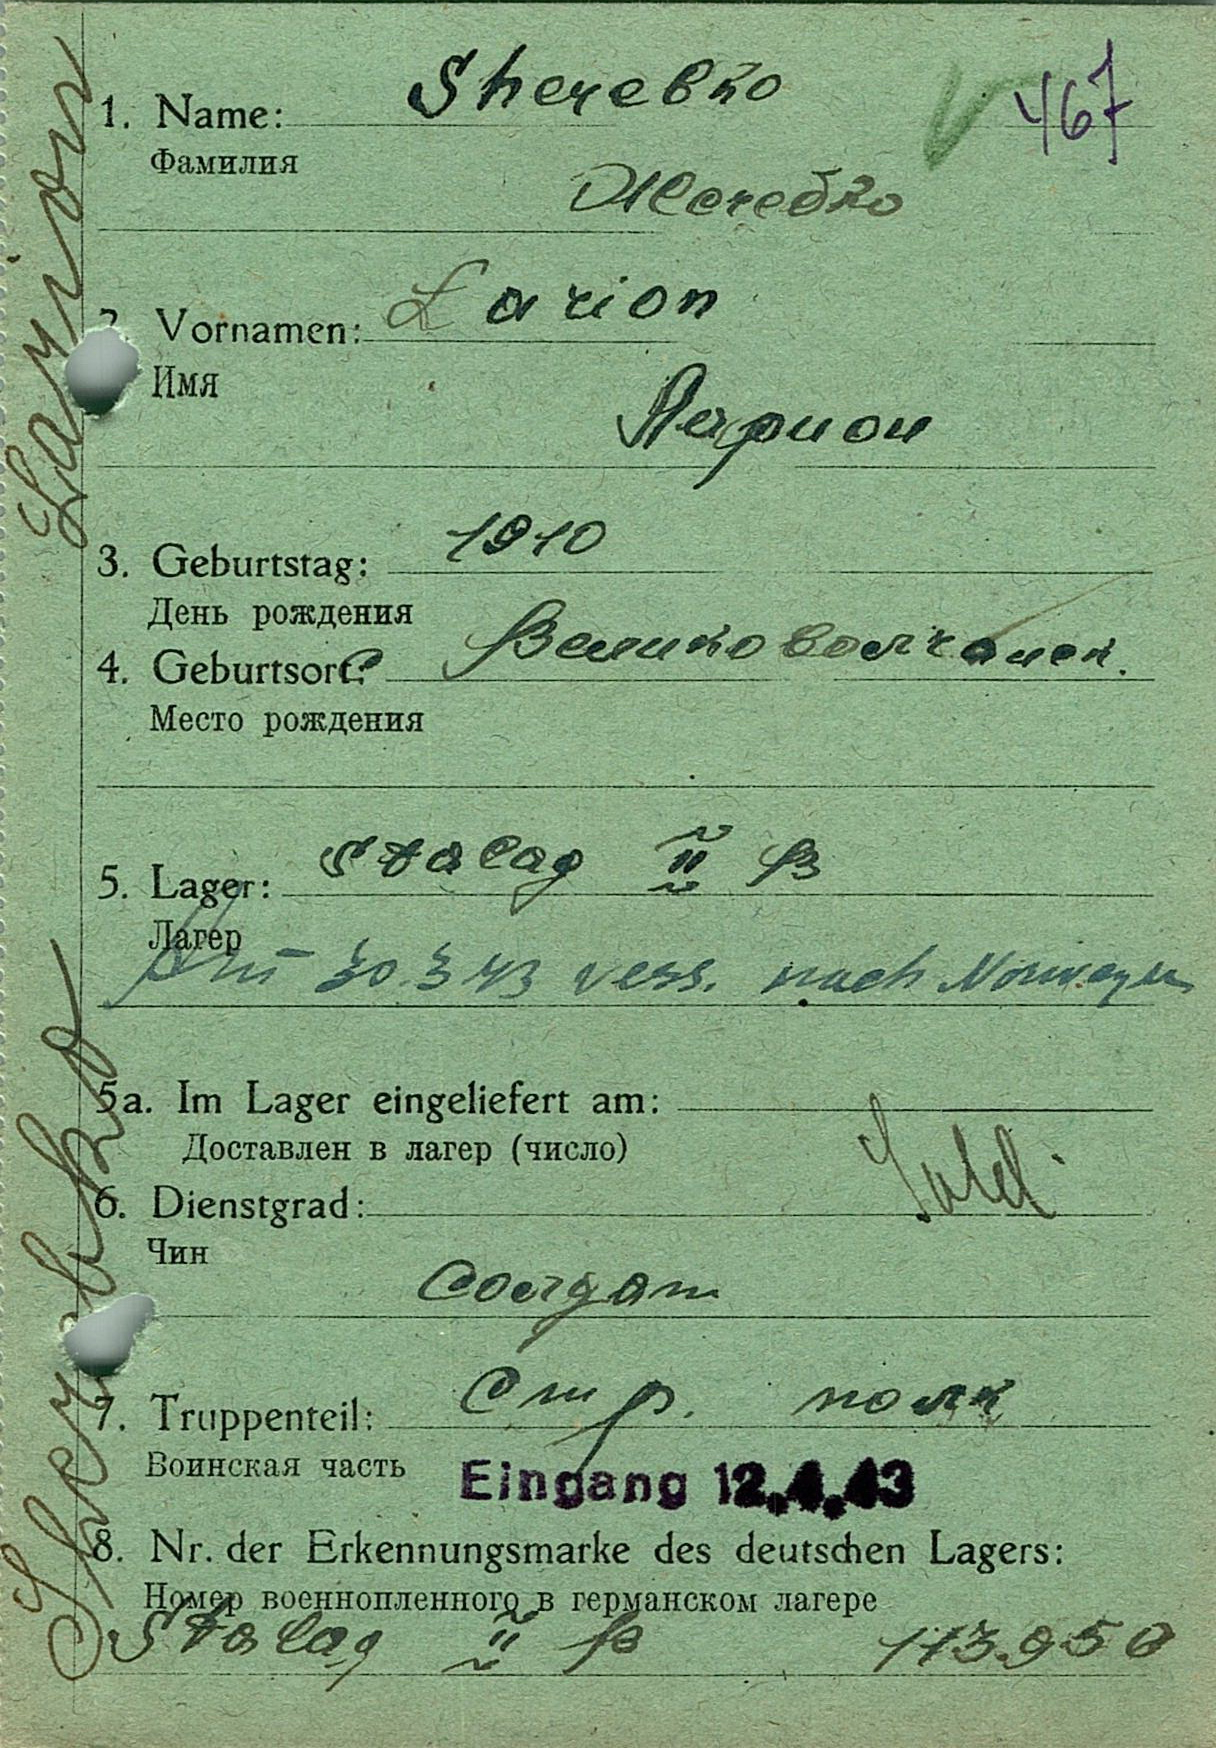 1. Name: Sherebko
467
Фамилия
Жеребко
2. Vornamen: Larion
Имя
Ларион
3. Geburtstag: 1910
День рождения
4. Geburtsort:
Место рождения
5. Lager: Stalag II B
Лагер
Am 30.3.43 vers. nach Norwegen
5a. Im Lager eingeliefert am:
Доставлен в лагер (число)
6. Dienstgrad: Sold.
Чин
Солдат
7. Truppenteil: Стр. полк
Воинская часть
Eingang 12.4.43
8. Nr. der Erkennungsmarke des deutschen Lagers:
Номер военнопленного в германском лагере
Stalag II B 113950
Sherebko Larion